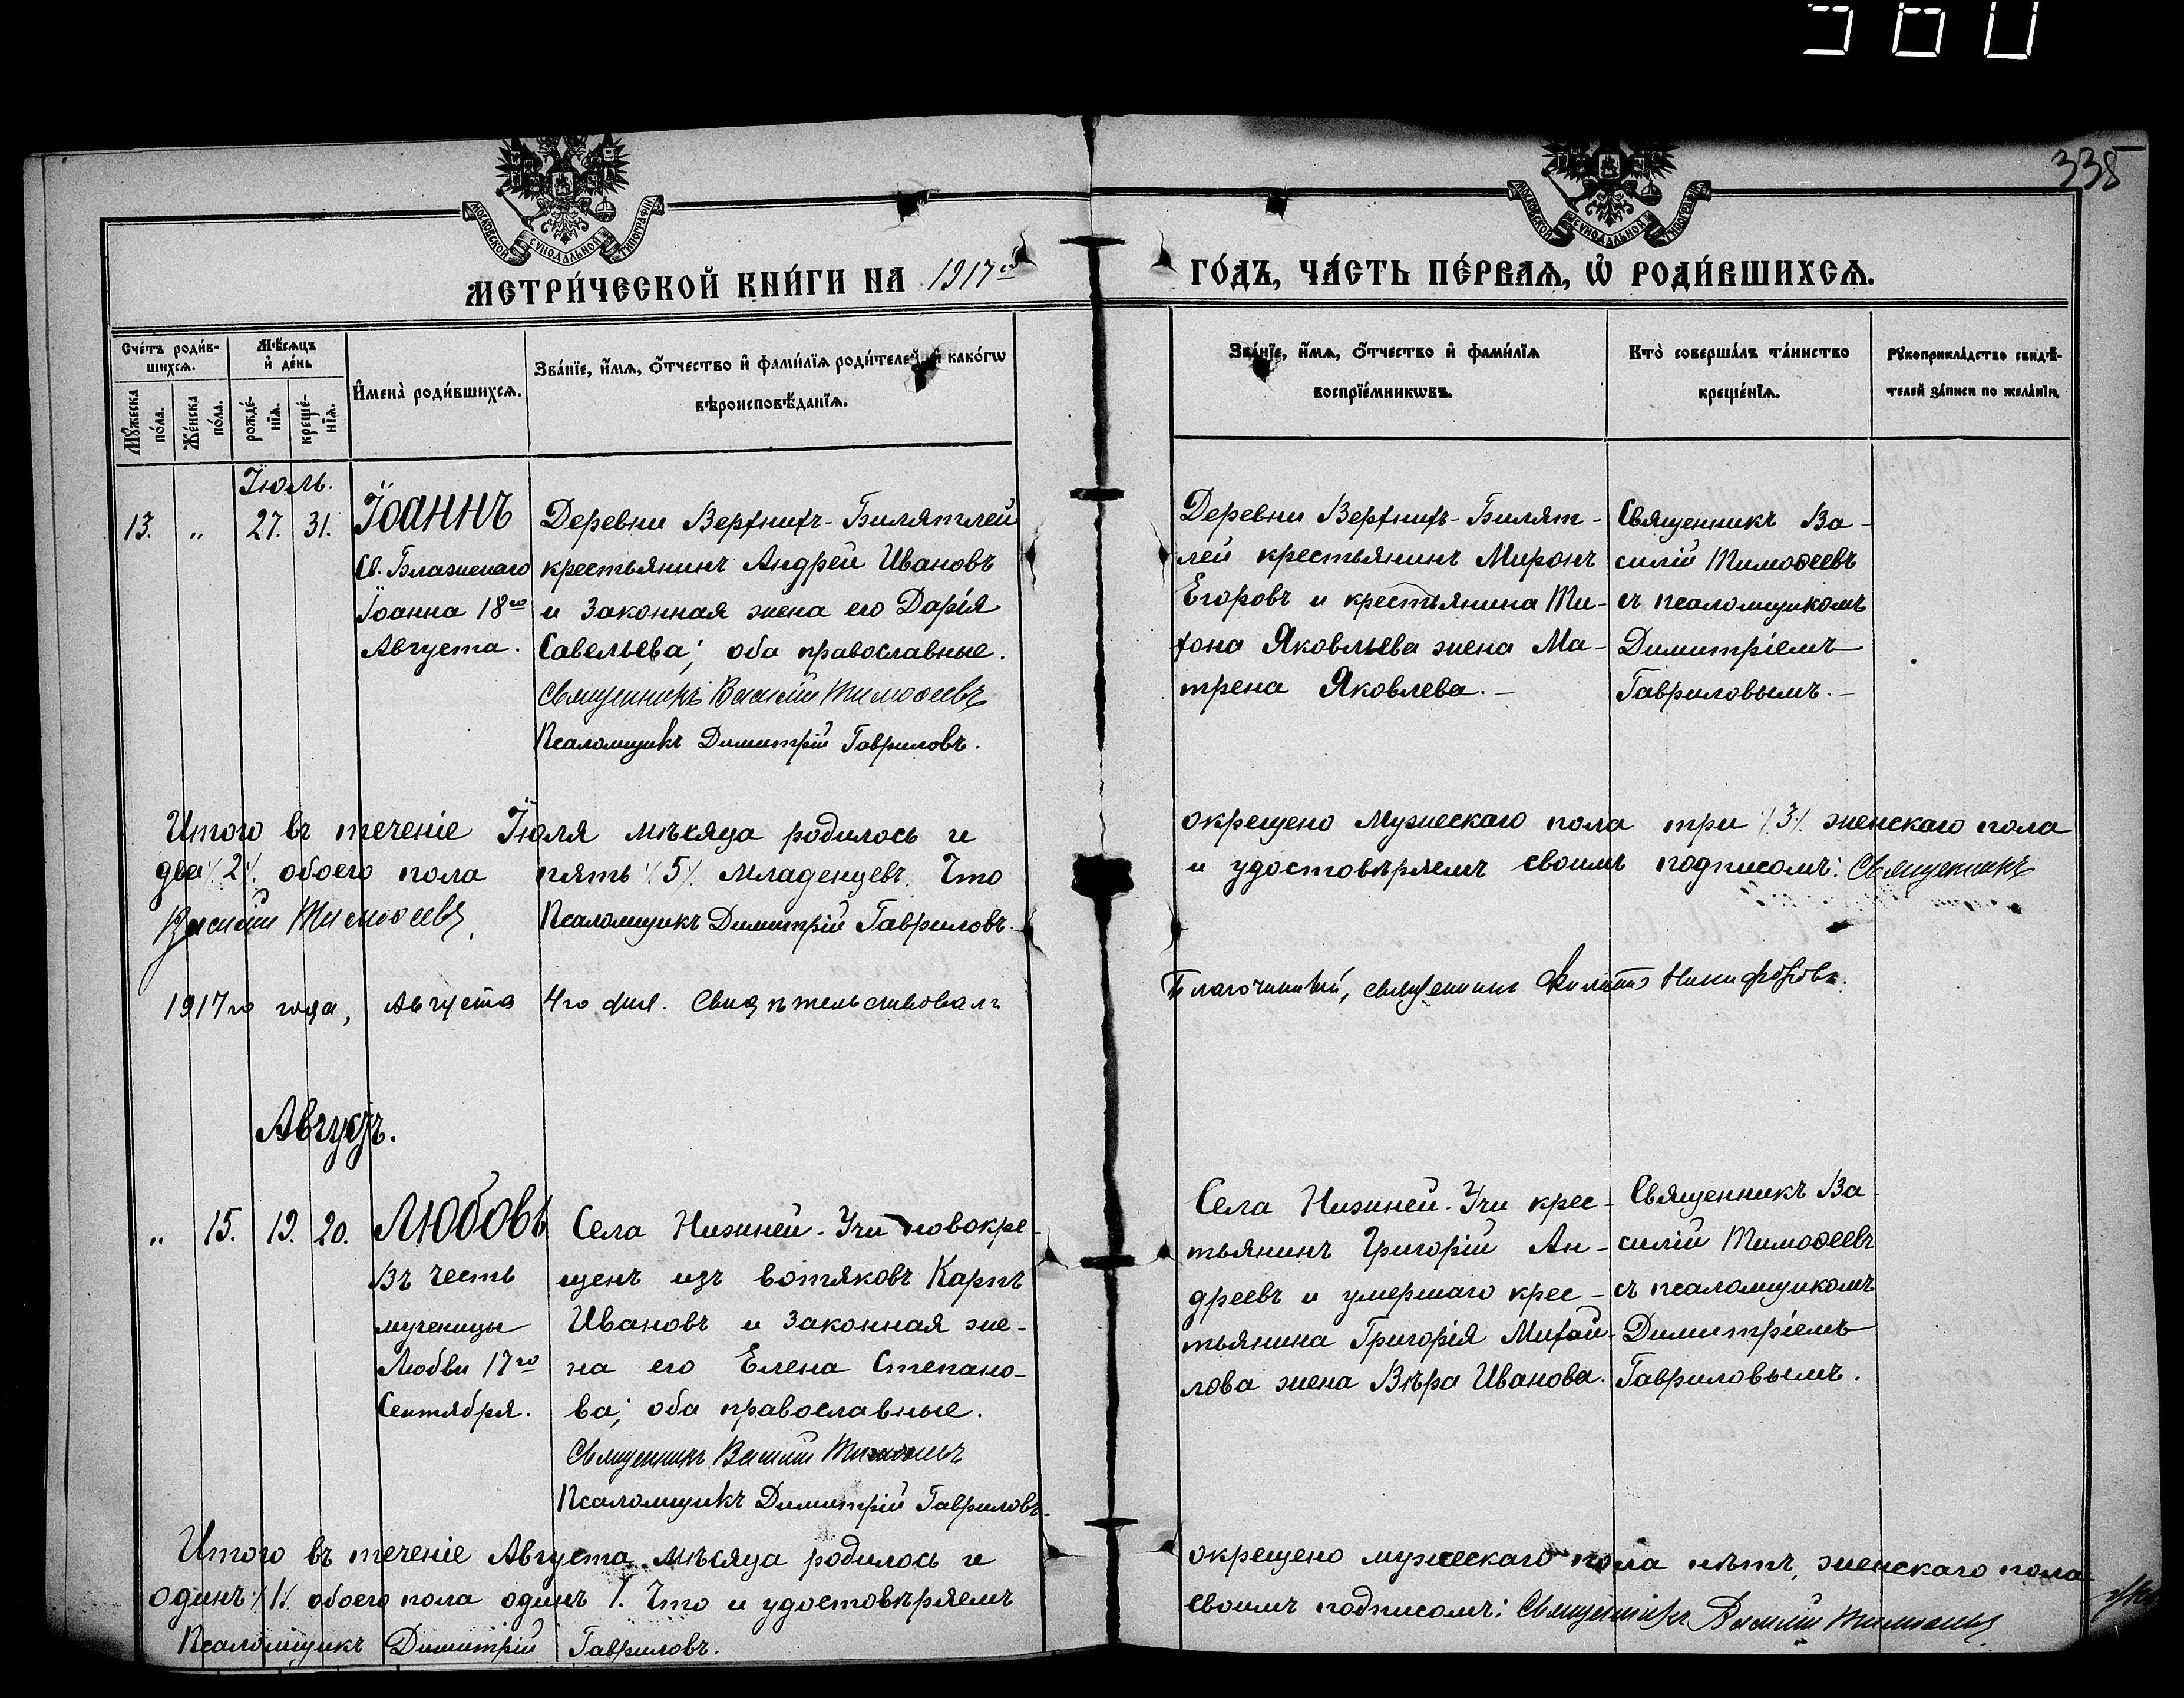 560
338
МОСКОВСКОЙ СУНОДАЛЬНОЙ ТИПОГРАФІИ
МОСКОВСКОЙ СУНОДАЛЬНОЙ ТИПОГРАФІИ
МЕТРИ́ЧЕСКОЙ КНИ́ГИ НА 1917й ГО́ДЪ, ЧА́СТЬ ПЕ́РВАѦ, Ѡ҆ РОДИ́ВШИХСѦ.
Сче́тъ роди́в-
шихсѧ.
Мѣ́сѧцъ
и҆ де́нь
Мꙋ́жеска
по́ла.
Же́нска
по́ла.
рожде́-
нїѧ.
креще́-
нїѧ.
И҆мена̀ роди́вшихсѧ.
Зва́нїе, и҆́мѧ, ѻ҆́тчество и҆ фами́лїѧ роди́телей, и҆ како́гѡ
вѣроисповѣ́данїѧ.
Зва́нїе, и҆́мѧ, ѻ҆́тчество и҆ фами́лїѧ
воспрїе́мникѡвъ.
Кто̀ соверша́лъ та́инство
креще́нїѧ.
Рꙋкоприкла́дство свидѣ́-
телей за́писи по жела́нїю.
Іюль.
13. " 27. 31.
Іоаннъ
Св. Блаженаго
Іоанна 18го
Августа.
Деревни Верхнихъ-Билятлей
крестьянинъ Андрей Ивановъ
и законная жена его Дарія
Савельева; оба православные.
Священникъ Василій Тимоѳеевъ
Псаломщикъ Димитрій Гавриловъ.
Деревни Верхнихъ-Билят-
лей крестьянинъ Миронъ
Егоровъ и крестьянина Ти-
хона Яковлева жена Ма-
трена Яковлева.-
Священникъ Ва-
силій Тимоѳеевъ
съ псаломщикомъ
Димитріемъ
Гавриловымъ.-
Итого въ теченіе Іюля мѣсяца родилось и окрещено мужескаго пола три /.3/. женскаго пола
два /.2/. обоего пола пять /.5/. младенцевъ. Что и удостовѣряемъ своимъ подписомъ: Священникъ
Василій Тимоѳеевъ. Псаломщикъ Димитрій Гавриловъ.
1917го года, Августа 4го дня. Свидѣтельствовалъ Благочинный, священникъ Филиппъ Никифоровъ.
Августъ.
" 15. 19. 20.
Любовь
Въ честь
мученицы
Любви 17го
Сентября.
Села Нижней-Учи новокре-
щенъ изъ вотяковъ Карпъ
Ивановъ и законная же-
на его Елена Степано-
ва; оба православные.
Священникъ Василій Тимоѳеевъ
Псаломщикъ Димитрій Гавриловъ.
Села Нижней-Учи крес-
тьянинъ Григорій Ан-
дреевъ и умершаго крес-
тьянина Григорія Михай-
лова жена Вѣра Иванова.
Священникъ Ва-
силій Тимоѳеевъ
съ псаломщикомъ
Димитріемъ
Гавриловымъ.
Итого въ теченіе Августа мѣсяца родилось и окрещено мужескаго пола нѣтъ, женскаго пола
одинъ /.1/. обоего пола одинъ 1. Что и удостовѣряемъ своимъ подписомъ: Священникъ Василій Тимоѳеевъ
Псаломщикъ Димитрій Гавриловъ.